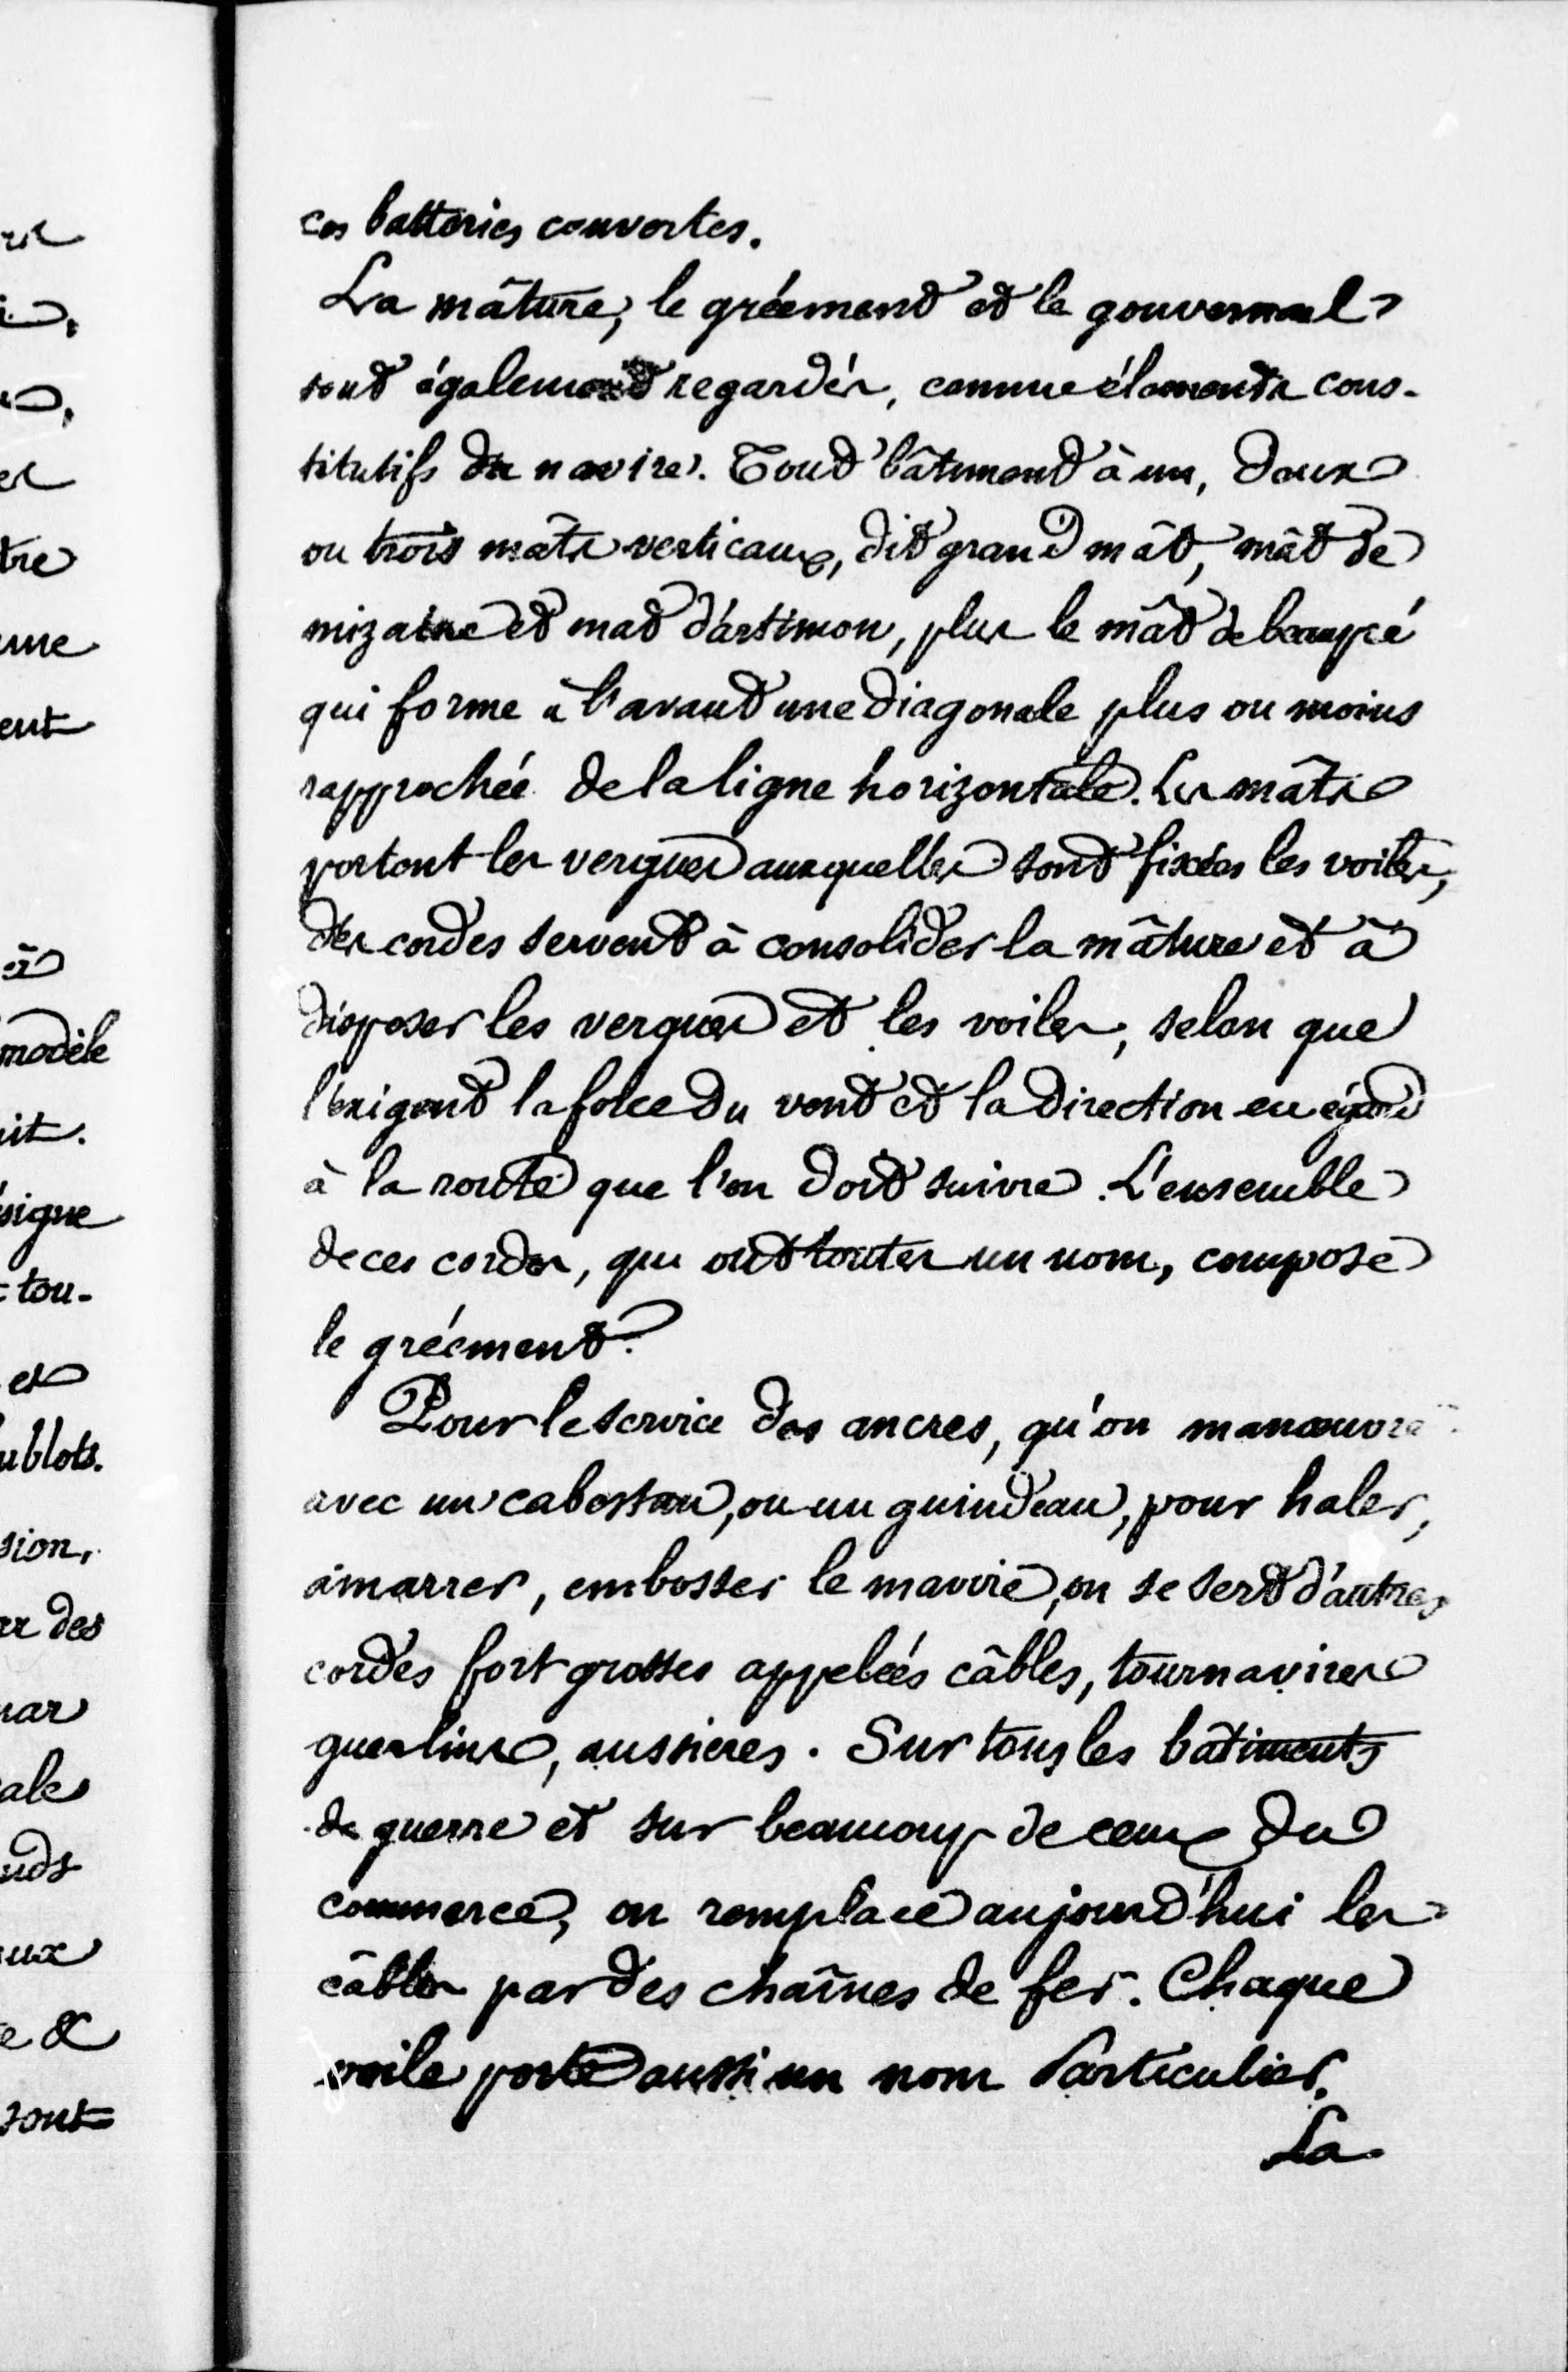 ces batteries couvertes.
La mâture, le gréement et le gouvernail
sont également regardés, comme éléments cons-
titutifs du navire. Tout bâtiment à un, deux
ou trois mâts verticaux, dit grand mât, mât de
mizaine et mat d'artimon, plus le mât de beaupré
qui forme à l'avant une diagonale plus ou moins
rapprochée de la ligne horizontale. Les mâts
portent les vergues auxquelles sont fixées les voiles,
des cordes servent à consolider la mâture et à
disposer les vergues et les voiles, selon que
l'exigent la force du vent et la direction eu égard
à la route que l'on doit suivre. L'ensemble
de ces cordes, qui ont toutes un nom, compose
le gréement.
Pour le service des ancres, qu'on manœuvre
avec un cabestan, ou un guindeau, pour haler,
amarrer, embosser le navire, on se sert d'autres
cordes fort grosses appelées câbles, tournavires
guerlins, aussieres. Sur tous les bâtiments
de guerre et sur beaucoup de ceux du
commerce, on remplace aujourd'hui les
câbles par des chaînes de fer. Chaque
voile porte aussi un nom Particulier.
La
tre
une
ent
à
modèle
it.
signe
tou-
et
ublots.
sion,
ar des
nar
ale
nds
aux
e &
sont